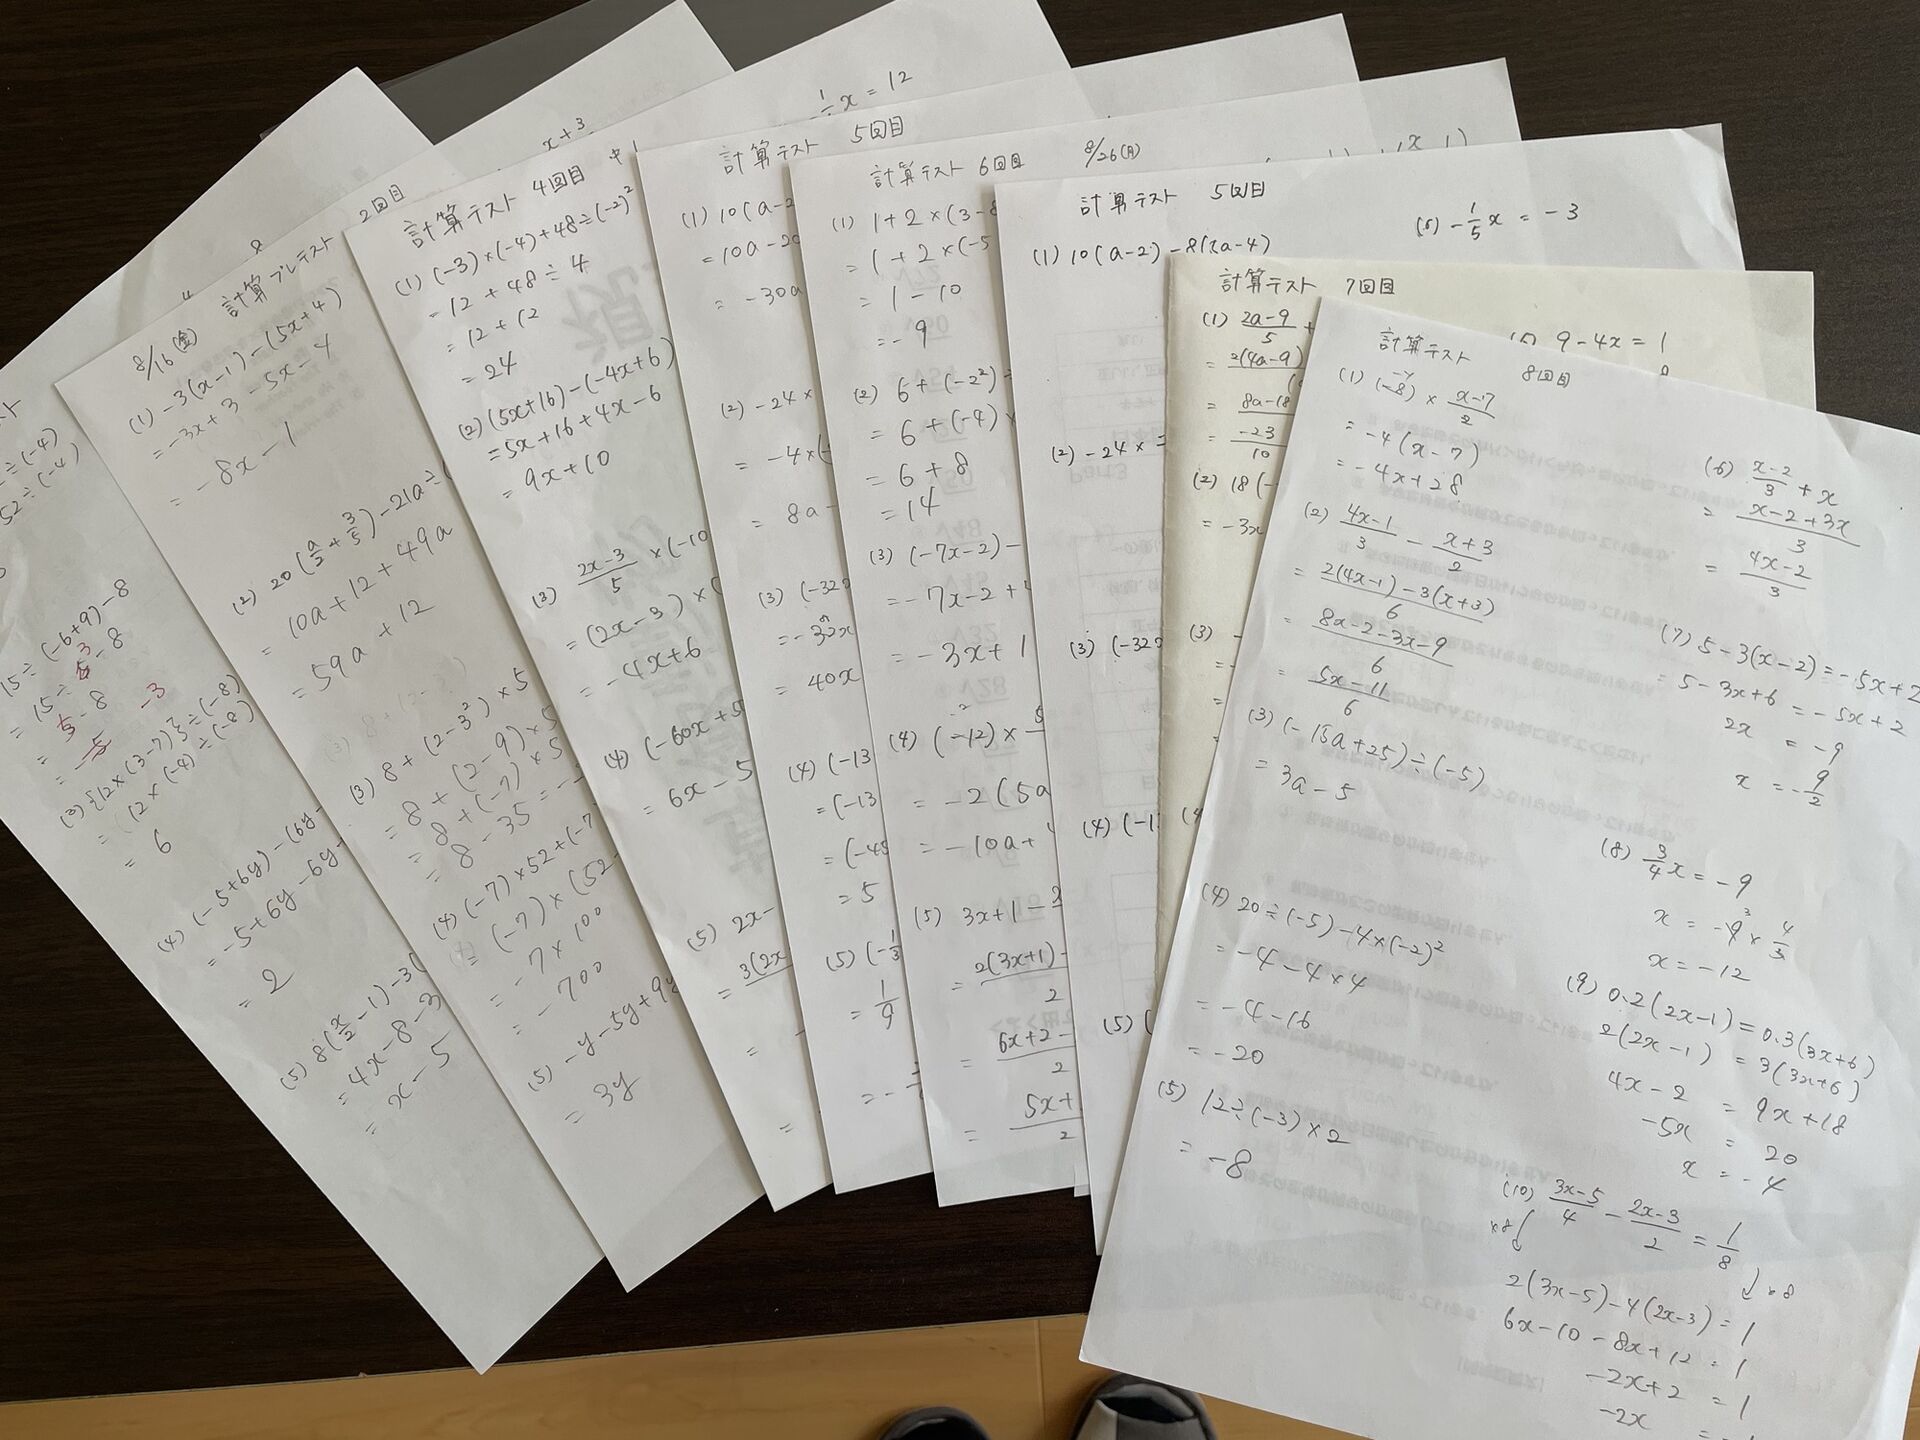 スト
÷(-4)
52÷(-4)
15÷(-6+9)-8
=15÷3-8
=5-8
=-5
-3
(3) {12×(3-7)}÷(-8)
=12×(-4)÷(-8)
=6
(4) (-5+6y)-(6y-
=-5+6y-6y-
=2
(5) 8(x/2-1)-3(
=4x-8-3
=x-5
8/16(金) 計算プレテスト 2回目
(1) -3(x-1)-(5x+4)
=-3x+3-5x-4
=-8x-1
(2) 20(a/2+3/5)-21a÷(
=10a+12+49a
=59a+12
(3) 8+(2-3²)×5
=8+(2-9)×5
=8+(-7)×5
=8-35=-
(4) (-7)×52+(-7
=(-7)×(52
=-7×100
=-700
(5) -y-5y+9y
=3y
x+3
計算テスト 4回目 中1
(1) (-3)×(-4)+48÷(-2)²
=12+48÷4
=12+12
=24
(2) (5x+16)-(-4x+6)
=5x+16+4x-6
=9x+10
(3) 2x-3/5×(-10
=(2x-3)×(
=-4x+6
(4) (-60x+5
=6x-5
(5) 2x-
=3(2x
x=12
計算テスト 5回目
(1) 10(a-2
=10a-20
=-30a
(2) -24×
=-4×(-
=8a-
(3) (-32x
=-32x
=40x
(4) (-13
=(-13
=(-45
=5
(5) (-1/3
=1/9
計算テスト 6回目 8/26(月)
(1) 1+2×(3-8
=1+2×(-5
=1-10
=-9
(2) 6+(-2²)÷
=6+(-4)×
=6+8
=14
(3) (-7x-2)-
=-7x-2+
=-3x+1
(4) (-12)×5
-2
=-2(5a
=-10a+
(5) 3x+1-3
=2(3x+1)-/2
=6x+2-/2
=5x+/2
計算テスト 5回目
(1) 10(a-2)-8(3a-4)
(2) -24×
(3) (-32x
(4) (-1
(5) (
(6) -1/5x=-3
計算テスト 7回目
(1) 2a-9/5+
=2(4a-9)
=8a-18
=-23/10
(2) 18(-
=-3x
(3) -
(4
9-4x=1
計算テスト 8回目
(1) (-8)×x-7/2
=-4(x-7)
=-4x+28
(2) 4x-1/3-x+3/2
=2(4x-1)-3(x+3)/6
=8x-2-3x-9/6
=5x-11/6
(3) (-15a+25)÷(-5)
=3a-5
(4) 20÷(-5)-4×(-2)²
=-4-4×4
=-4-16
=-20
(5) 12÷(-3)×2
=-8
(6) x-2/3+x
=x-2+3x/3
=4x-2/3
(7) 5-3(x-2)=-5x+2
=5-3x+6=-5x+2
2x=-9
x=-9/2
(8) 3/4x=-9
x=-9×4/3
x=-12
(9) 0.2(2x-1)=0.3(3x+6)
2(2x-1)=3(3x+6)
4x-2=9x+18
-5x=20
x=-4
(10) 3x-5/4-2x-3/2=1/8
×8 ×8
2(3x-5)-4(2x-3)=1
6x-10-8x+12=1
-2x+2=1
-2x